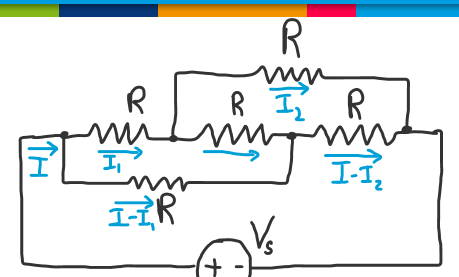 R
I₂
R
R
R
I
I₁
I-I₂
I-I₁
R
Vs
+ -